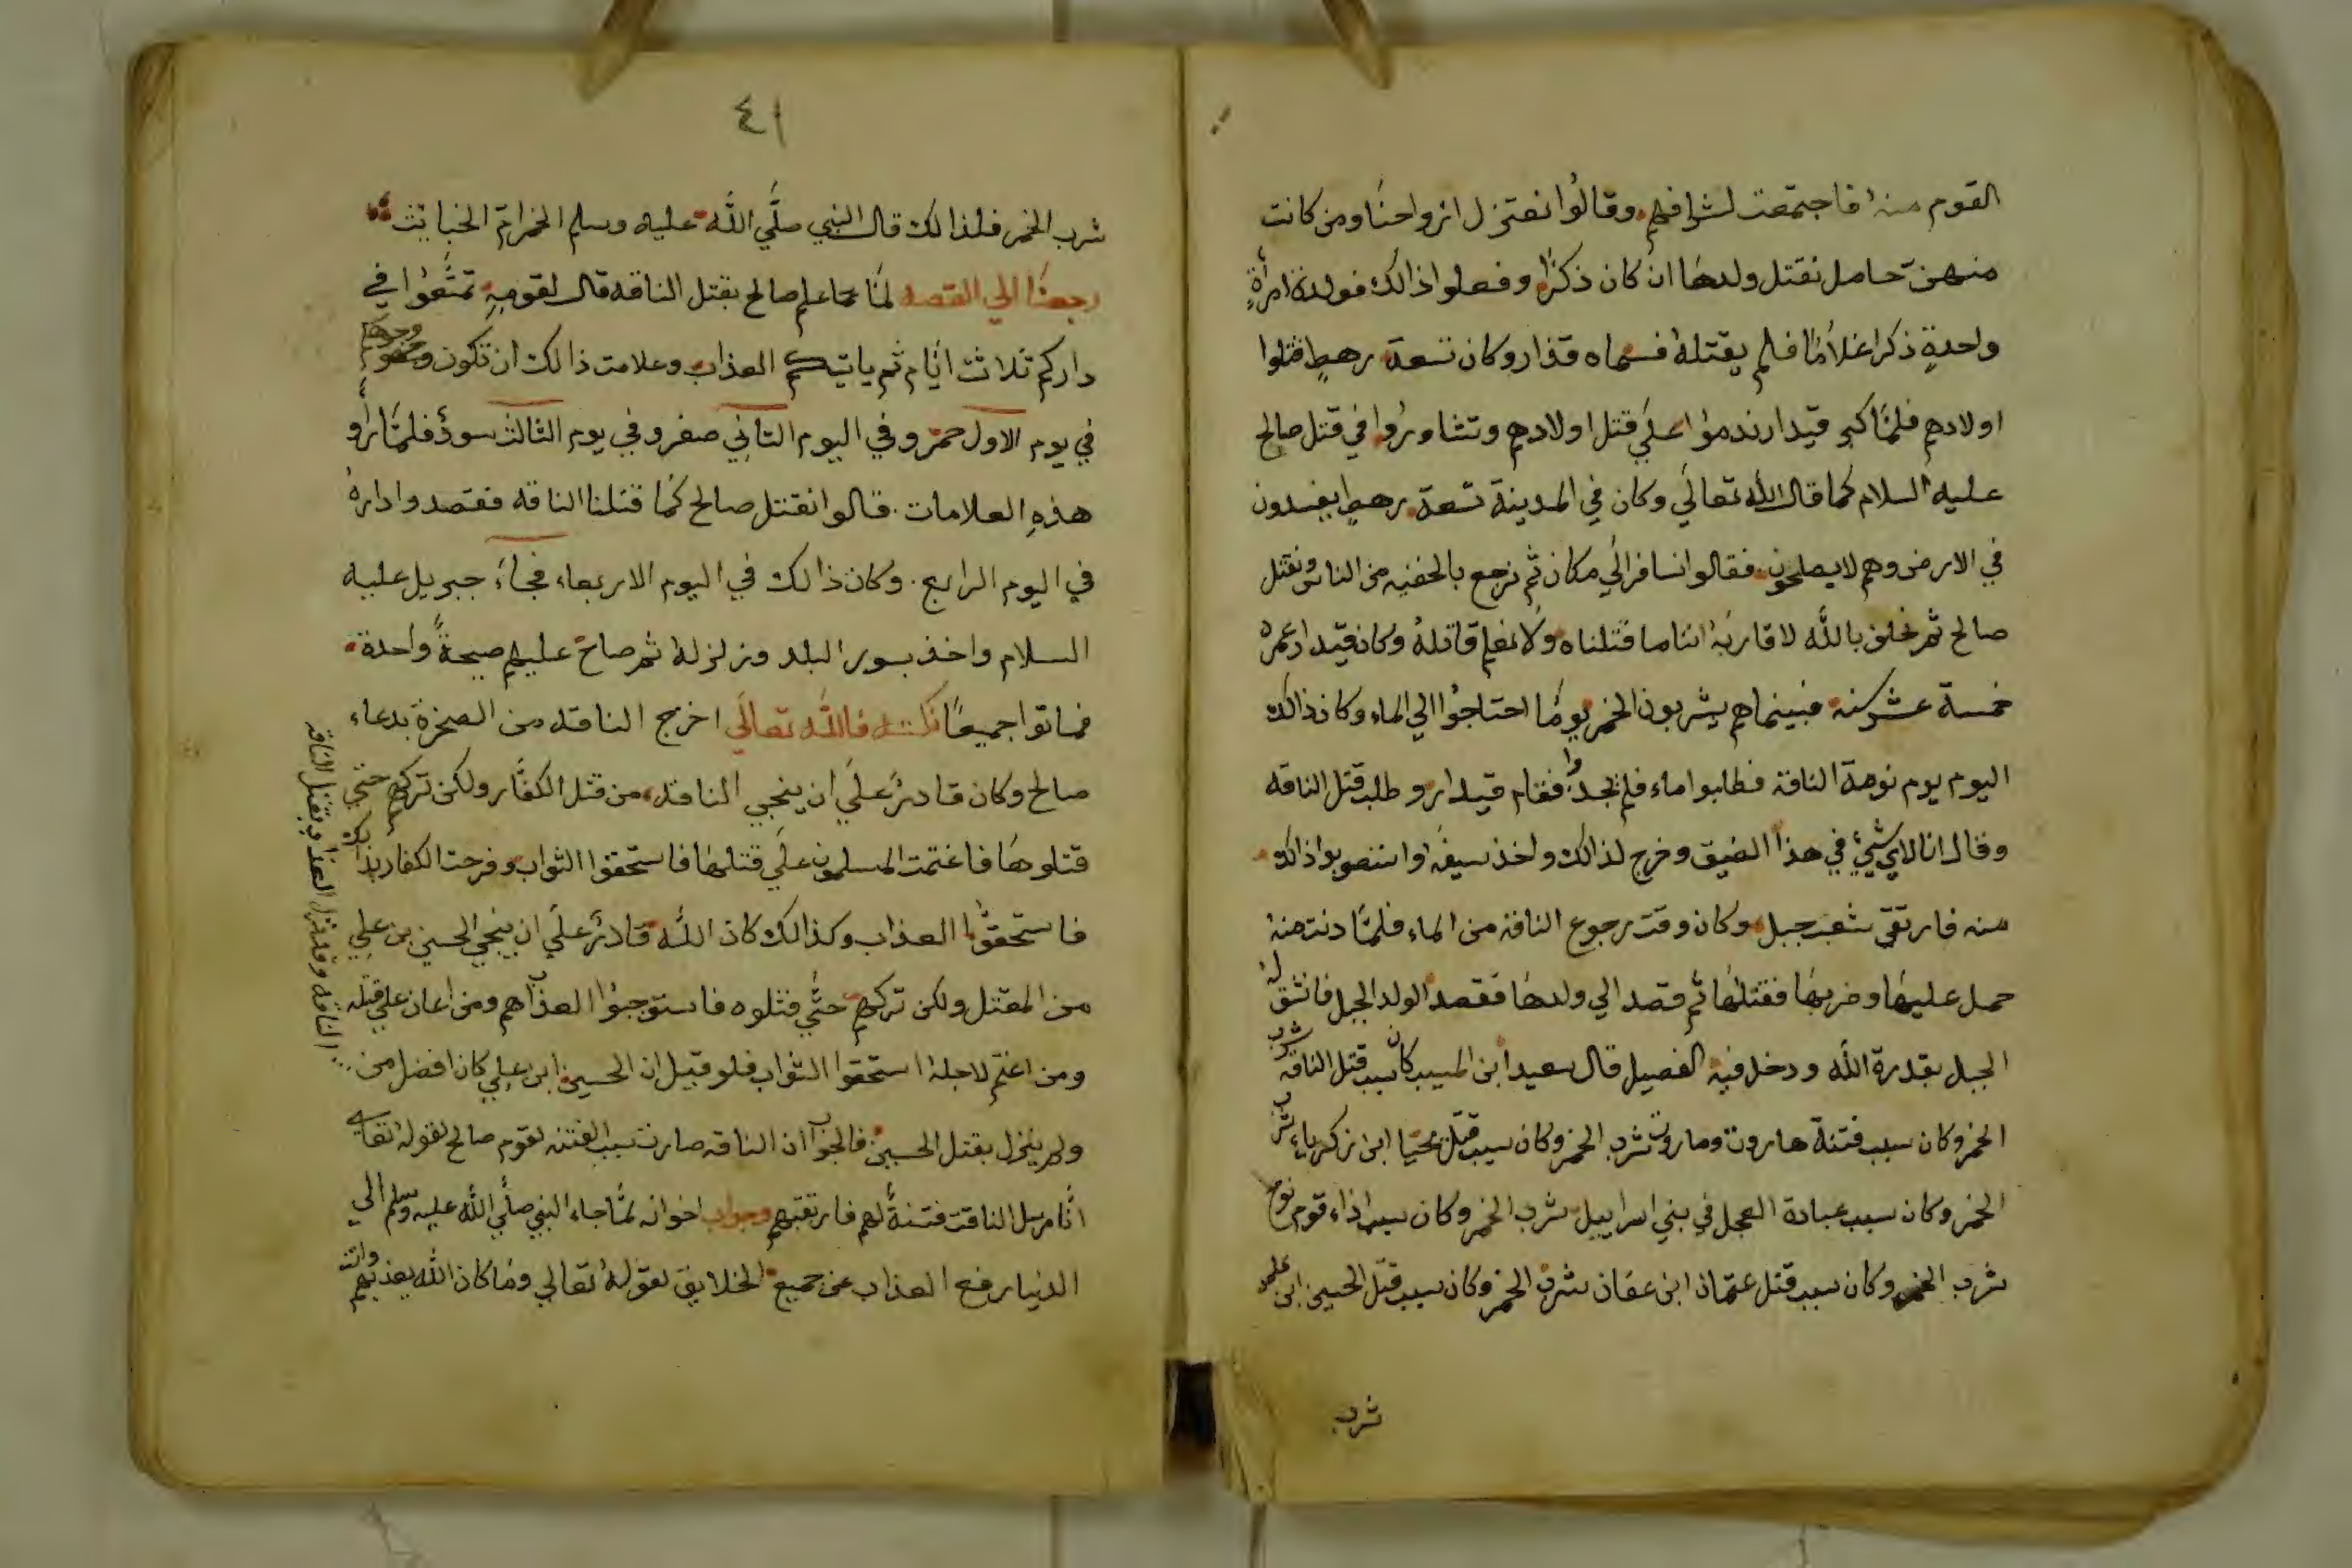 القوم منهُ فاجتمعت لشرافهم وقالوُا نعتزل ازواحنَا ومن كانت
منهنّ حامل نقتل ولدهَا انْ كان ذكرًا وفعلوا ذالك فولدة امرأةٍ
واحدةٍ ذكرا غلاَمًا فلم يقتلهُ فسماه قذار وكان تسعة رهطٍ قتلوا
اولادهم فلمَّا كبر قيدار ندموُا علَي قتل اولادهم وتشاورُوا في قتل صالح
عليه السلام كما قال الله تعالَي وكان في المدينة تسعة رهطٍ يفسدون
في الارض وهم لا يصلحون فقالوا نسافر الَي مكان ثم نرجع بالخفيه من الناس ونقتل
صالح ثم نحلف بالله لاقاربهُ اننا ما قتلناه ولا نعلم قاتلهُ وكان قيدار عمره
خمسة عشر سنه فبينماهم يشربون الخمر يومًا احتاجُوا الي الماء وكان ذالك
اليوم يوم نوبة الناقة فطلبوا ماء فلم يجدُوا فقام قيدار وطلب قتل الناقه
وقال انا لاي شيْ في هذا الضيق وخرج لذالك واخذ سيفهُ واستصوبوا ذالك
منه فارتقي شعب جبل وكان وقت رجوع الناقة من الماء فلمَّا دنت منهُ
حمل عليهَا وضربهَا فقتلهَا ثم قصد الي ولدهَا فقصد الولد الجبل فانشق لهُ
الجبل بقدرة الله ودخل فيه الفصيل قال سعيد ابن المسيب كان سبب قتل الناقه شرب
الخمر وكان سبب فتنة هاروت وماروت شرب الخمر وكان سبب قتل يحيَا ابن زكرياء شرب
الخمر وكان سبب عبادة العجل في بني اسراييل شرب الخمر وكان سبب اذاء قوم نوح
شرب الخمر وكان سبب قتل عثمان ابن عفان شرب الخمر وكان سبب قتل الحسين ابن علي
شرب
٤١
شرب الخمر فلذالك قال النبي صلَّي الله عليه وسلم الخمر امّ الخبايث
رجعنَا الي القصه لمَّا علم صالح بقتل الناقه قال لقومهِ تمتَّعوُا في
داركم ثلاث ايَّام ثم ياتيكم العذاب وعلامت ذالك ان تكون وجوهكم
في يوم الاول حمرّ وفي اليوم الثاني صفر وفي يوم الثالث سودٌ فلمَّا رأو
هذهِ العلامات قالوا نقتل صالح كمَا قتلنا الناقه فقصدوا دارهُ
في اليوم الرابع وكان ذالك في اليوم الاربعاء فجاءَ جبريل عليه
السلام واخذ بسور البلد وزلزله ثم صاح عليهم صيحةً واحدة
فماتوا جميعًا نكته فالله تعالَي اخرج الناقه من الصخرة بدعاء
صالح وكان قادرٌ علَي ان ينجي الناقه من قتل الكفَّار ولكن تركهم حتي
قتلوهَا فاغتمت المسلمون علَي قتلهَا فاستحقوا الثواب وفرحت الكفار بذالك
فاستحقُّوا العذاب وكذالك كان الله قادرٌ علَي ان ينجي الحسين بن علي
من المقتل ولكن تركهم حتَّي قتلوه فاستوجبُوا العذاب هم ومن اعان علي قتله
ومن اغتم لاجلهُ استحقوا الثواب فلو قيل ان الحسين ابن علي كان افضل من
الناقه وقد نزل العذاب بقتل الناقه
ولم ينزل بقتل الحسين فالجواب ان الناقه صارت سبب الفتنه لقوم صالح لقولهُ تعالي
انَّا مرسل الناقت فتنةٌ لهم فارتقبهم وجواب اخر انه لمَّا جاء النبي صلَّي الله عليه وسلم الي
الدنيا رفع العذاب عن جميع الخلايق لقولهُ تعالي وما كان الله ليعذبهم وانت